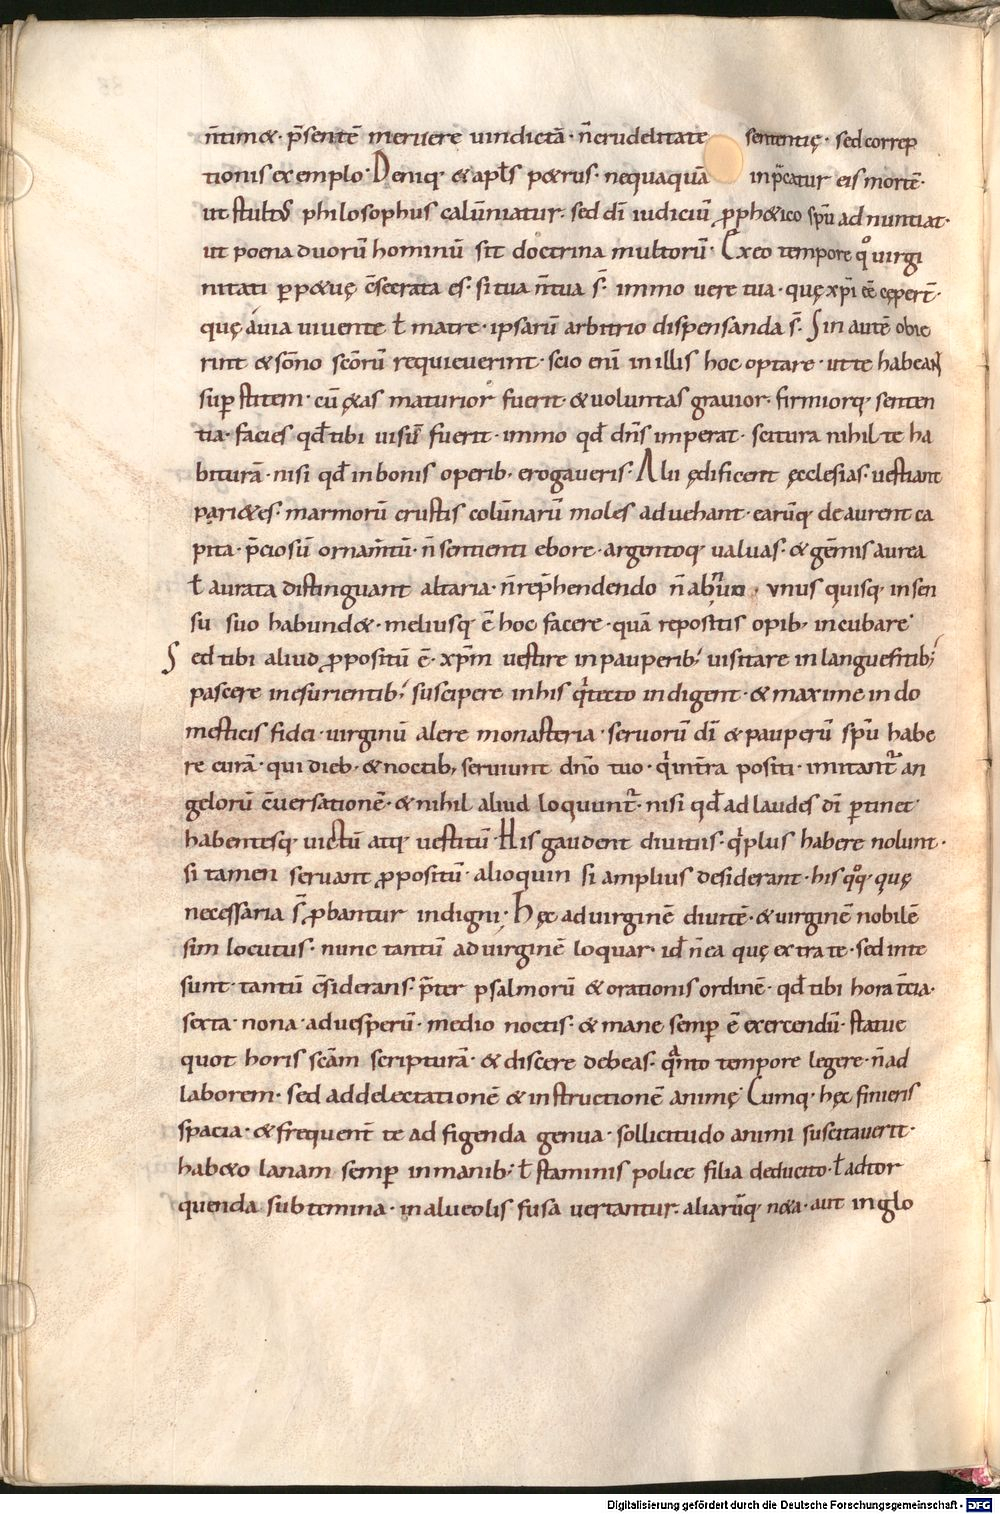 n̄tim&· p̄sentē meruere uindictā· n̄ crudelitate sententię· sed correp
tionis exemplo· Deniq· & apl̄s p&rus· nequaquā inp̄catur eis mortē·
ut stultꝰ philosophus calūniatur· sed dī iudiciū ꝓph&ico spū adnuntiat·
ut poena duorū hominū sit doctrina multorū· Ex eo tempore qͦ uirgi
nitati ꝑp&uę c̄secrata es· si tua n̄ tua s̄· immo uere tua· quę xp̄i eē cęper̄t·
quę áuia uiuente ł matre· ipsarū arbitrio dispensanda s̄· Sin autē obie
rint & sōno sc̄orū requieuerint· scio enī in illis hoc optare· ut te habeant
suꝑstitem· cū ęt&as maturior fuerit· & uoluntas grauior· firmiorq· senten
tia· facies qd̄ tibi uisū fuerit· immo qd̄ dn̄s imperat· scitura nihil te ha
biturā· nisi qd̄ in bonis operib· erogaueris· Alii ędificent ęcclesias· uestiant
pari&es· marmorū crustis colūnarū moles aduehant· earūq deaurent ca
pita· p̄ciosū ornam̄tū· n̄ sentienti ebore· argentoq ualuas· & gēmis aurea
ł aurata distinguant altaria· n̄ rep̄hendendo n̄ abnuo· vnus quisq· in sen
su suo habund&· meliusq ē hoc facere· quā repositis opib· incubare·
Sed tibi aliud ꝓpositū ē· xp̄m uestire in pauperib; uisitare in languentib;
pascere in esurientib; suscipere in his q̄ tecto indigent· & maxime in do
mesticis fidei· uirginū alere monasteria· seruorū dī & pauperū spū habe
re curā· qui dieb· & noctib, seruiunt dn̄o tuo· q̄ in t̄ra positi· imitant̄ an
gelorū c̄uersationē· & nihil aliud loquunt̄· nisi qd̄ ad laudes dī ꝑtinet·
habentesq uictū atq uestitū· His gaudent diuitiis· q̄ plus habere nolunt·
si tamen seruant ꝓpositū· alioquin si amplius desiderant· his qͦq· quę
necessaria s̄ ꝓbantur indigni· Hęc ad uirginē diuitē· & uirginē nobilē
sim locutus· nunc tantū ad uirginē loquar· id̄ n̄ ea quę extra te· sed in te
sunt· tantū c̄siderans· p̄ter psalmorū & orationis ordinē· qd̄ tibi hora t̄cia·
sexta· nona· ad uesperū· medio noctis· & mane semꝑ ē exercendū· statue
quot horis sc̄am scripturā· & discere debeas· q̄nto tempore legere· n̄ ad
laborem· sed ad delectationē & instructionē animę· Cumq· hęc finieris
spacia· & frequent̄ te ad figenda genua· sollicitudo animi suscitauerit·
hab&o lanam semꝑ in manib; ł staminis police fila deducito· ł ad tor
quenda subtemina· in alueolis fusa uertantur· aliarūq n&a· aut in glo
Digitalisierung gefördert durch die Deutsche Forschungsgemeinschaft - DFG